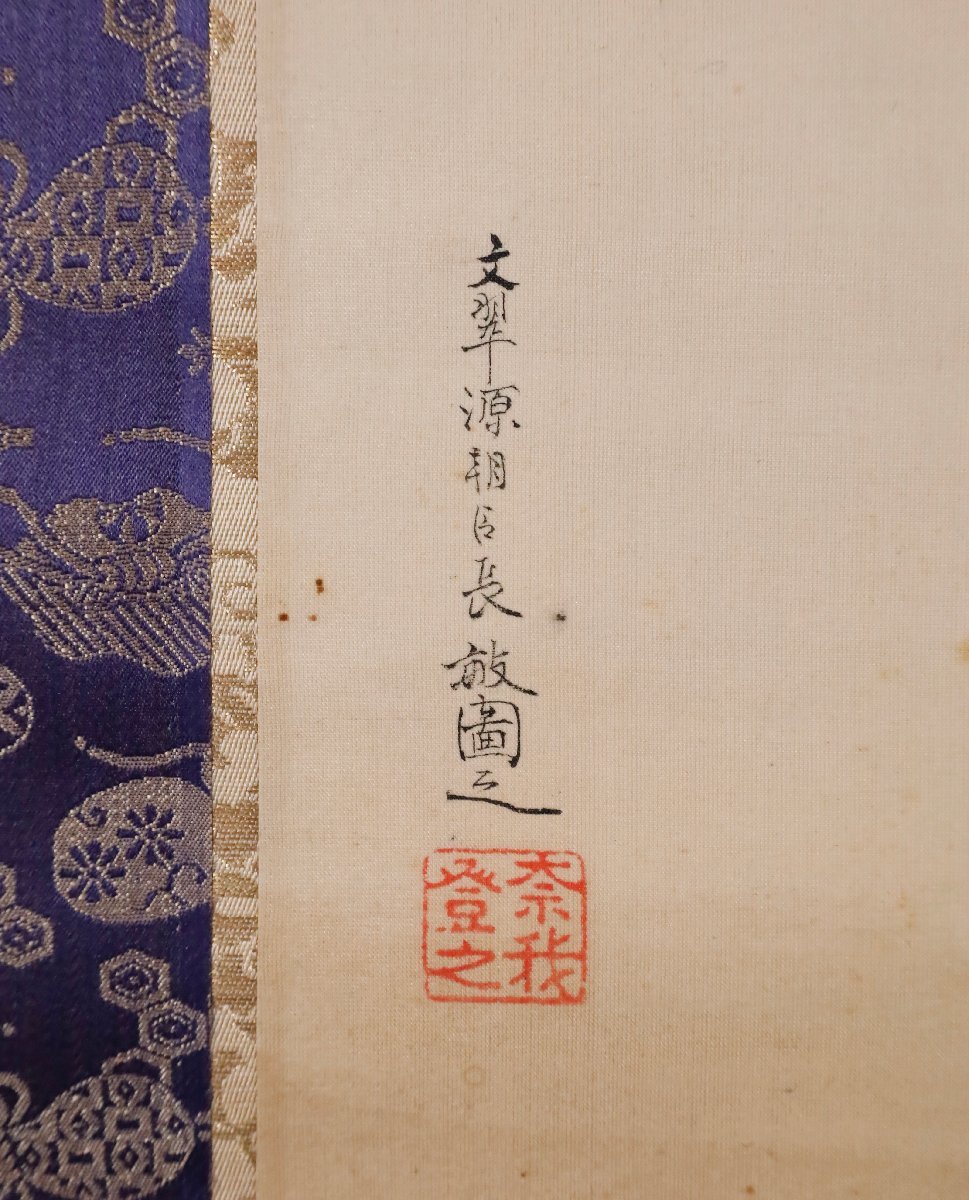 文翆源朝臣長敏圖之
奈我
登之